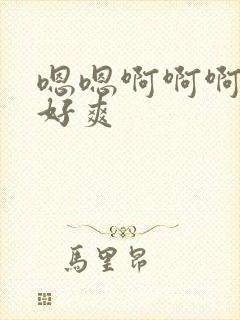 嗯嗯啊啊啊
好爽
馬里昂